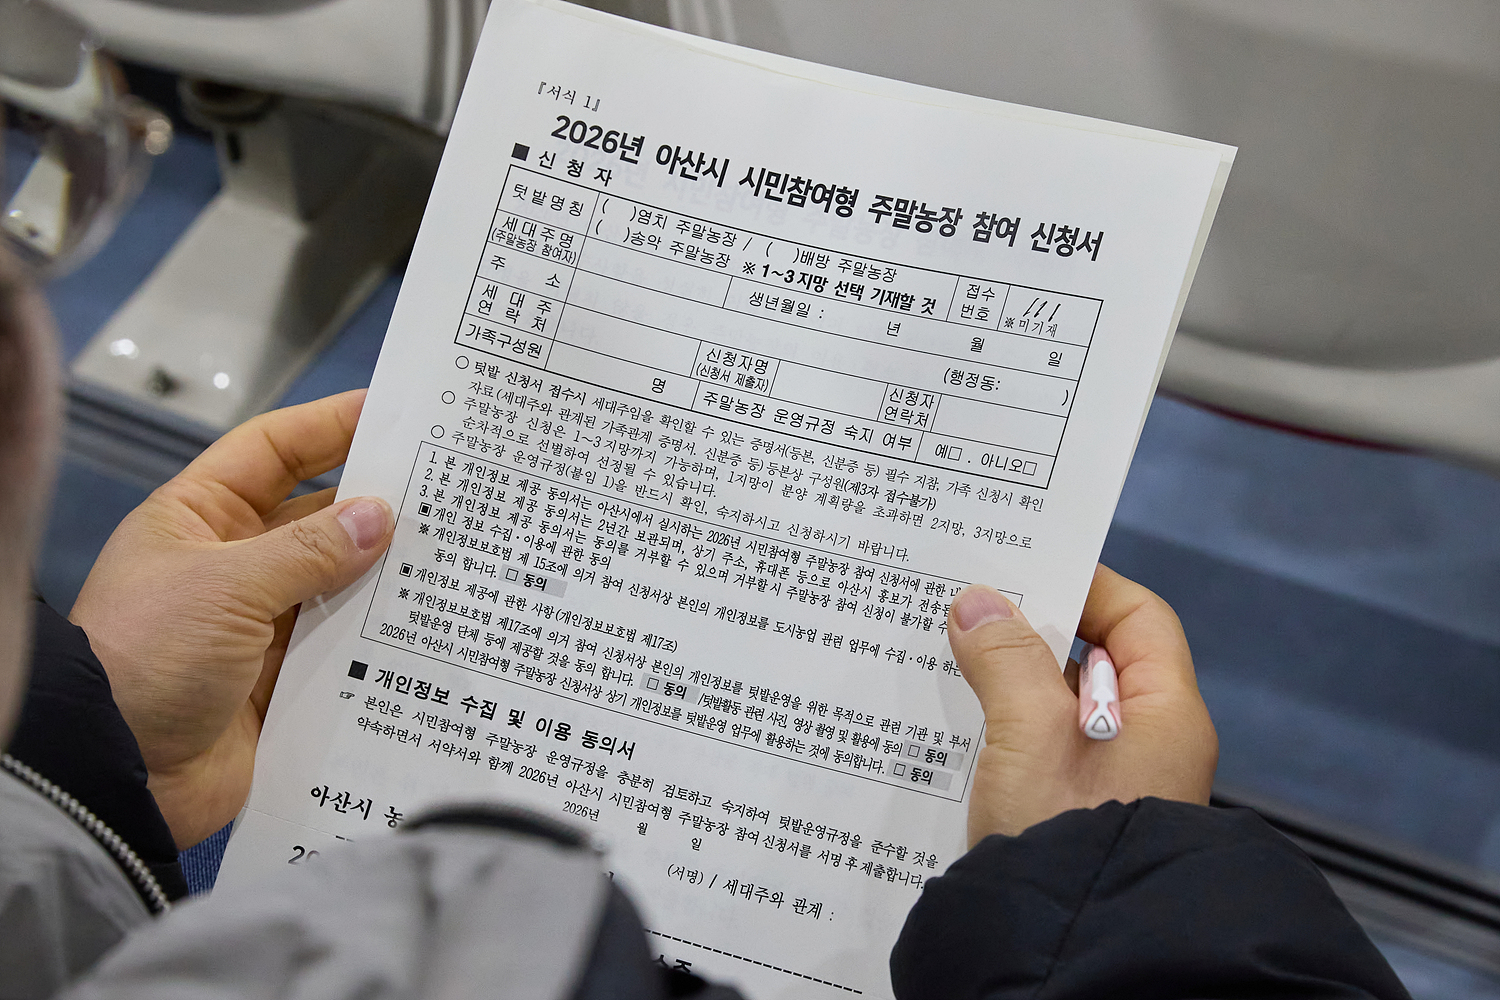 『서식 1』
2026년 아산시 시민참여형 주말농장 참여 신청서
■ 신 청 자
텃 밭 명 칭
( )염치 주말농장 / ( )배방 주말농장
( )송악 주말농장 ※ 1~3지망 선택 기재할 것
접수
번호
※미기재
세 대 주 명
(주말농장 참여자)
생년월일 : 년 월 일
주 소
(행정동: )
세 대 주
연 락 처
신청자명
(신청서 제출자)
신청자
연락처
가족구성원
명
주말농장 운영규정 숙지 여부
예□ . 아니오□
○ 텃밭 신청서 접수시 세대주임을 확인할 수 있는 증명서(등본, 신분증 등) 필수 지참, 가족 신청시 확인
자료(세대주와 관계된 가족관계 증명서, 신분증 등)등본상 구성원(제3자 접수불가)
○ 주말농장 신청은 1~3지망까지 가능하며, 1지망이 분양 계획량을 초과하면 2지망, 3지망으로
순차적으로 선별하여 선정될 수 있습니다.
○ 주말농장 운영규정(붙임 1)을 반드시 확인, 숙지하시고 신청하시기 바랍니다.
1. 본 개인정보 제공 동의서는 아산시에서 실시하는 2026년 시민참여형 주말농장 참여 신청서에 관한
2. 본 개인정보 제공 동의서는 2년간 보관되며, 상기 주소, 휴대폰 등으로 아산시 홍보가
3. 본 개인정보 제공 동의서는 동의를 거부할 수 있으며 거부할 시 주말농장 참여 신청이 불가할
▣ 개인 정보 수집·이용에 관한 동의
※ 개인정보보호법 제 15조에 의거 참여 신청서상 본인의 개인정보를 도시농업 관련 업무에 수집·이용
동의 합니다. □ 동의
▣ 개인정보 제공에 관한 사항(개인정보보호법 제17조)
※ 개인정보보호법 제17조에 의거 참여 신청서상 본인의 개인정보를 텃밭운영을 위한 목적으로 관련 기관 및 부서
텃밭운영 단체 등에 제공할 것을 동의 합니다. □ 동의 /텃밭활동 관련 사진, 영상 촬영 및 활용에 동의 □ 동의
2026년 아산시 시민참여형 주말농장 신청서상 상기 개인정보를 텃밭운영 업무에 활용하는 것에 동의합니다. □ 동의
■ 개인정보 수집 및 이용 동의서
☞ 본인은 시민참여형 주말농장 운영규정을 충분히 검토하고 숙지하여 텃밭운영규정을 준수할 것을
약속하면서 서약서와 함께 2026년 아산시 시민참여형 주말농장 참여 신청서를 서명 후 제출합니다.
2026년 월 일
(서명) / 세대주와 관계 :
아산시